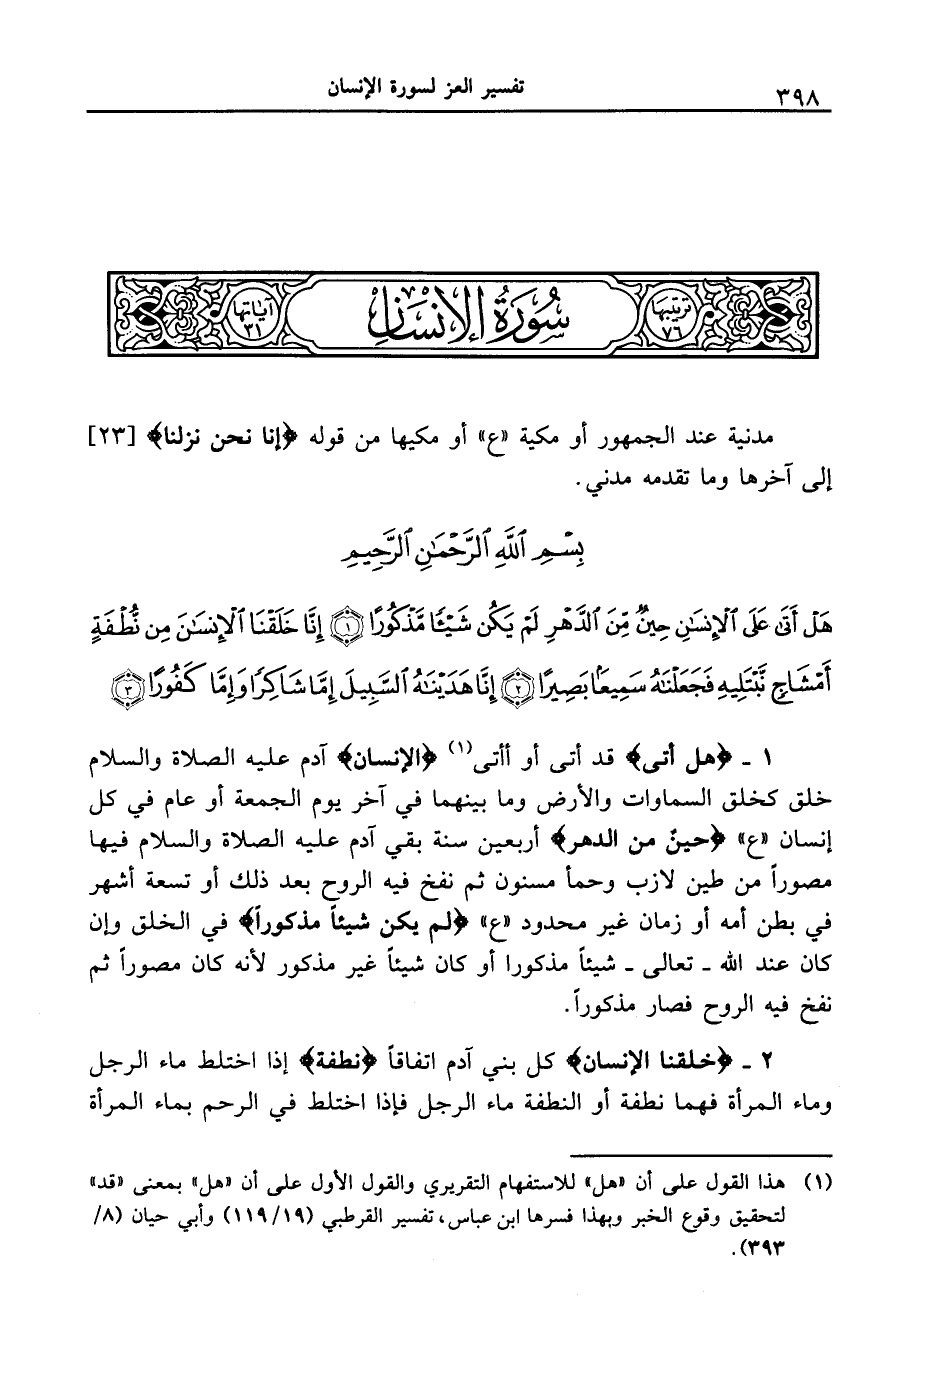 ٣٩٨ تفسير العز لسورة الإنسان
ترتيبها ٧٦ سُورَةُ الإِنسَانِ آياتها ٣١
مدنية عند الجمهور أو مكية «ع» أو مكيها من قوله ﴿إنا نحن نزلنا﴾ [٢٣]
إلى آخرها وما تقدمه مدني.
بِسْمِ ٱللَّهِ ٱلرَّحْمَٰنِ ٱلرَّحِيمِ
هَلْ أَتَىٰ عَلَى ٱلْإِنسَٰنِ حِينٌ مِّنَ ٱلدَّهْرِ لَمْ يَكُن شَيْـًٔا مَّذْكُورًا ۝١ إِنَّا خَلَقْنَا ٱلْإِنسَٰنَ مِن نُّطْفَةٍ
أَمْشَاجٍ نَّبْتَلِيهِ فَجَعَلْنَٰهُ سَمِيعًۢا بَصِيرًا ۝٢ إِنَّا هَدَيْنَٰهُ ٱلسَّبِيلَ إِمَّا شَاكِرًا وَإِمَّا كَفُورًا ۝٣
١ ـ ﴿هل أتى﴾ قد أتى أو أأتى(١) ﴿الإنسان﴾ آدم عليه الصلاة والسلام
خلق كخلق السماوات والأرض وما بينهما في آخر يوم الجمعة أو عام في كل
إنسان «ع» ﴿حينٌ من الدهر﴾ أربعين سنة بقي آدم عليه الصلاة والسلام فيها
مصوراً من طين لازب وحمأ مسنون ثم نفخ فيه الروح بعد ذلك أو تسعة أشهر
في بطن أمه أو زمان غير محدود «ع» ﴿لم يكن شيئاً مذكوراً﴾ في الخلق وإن
كان عند الله ـ تعالى ـ شيئاً مذكورا أو كان شيئاً غير مذكور لأنه كان مصوراً ثم
نفخ فيه الروح فصار مذكوراً.
٢ ـ ﴿خلقنا الإنسان﴾ كل بني آدم اتفاقاً ﴿نطفة﴾ إذا اختلط ماء الرجل
وماء المرأة فهما نطفة أو النطفة ماء الرجل فإذا اختلط في الرحم بماء المرأة
(١) هذا القول على أن «هل» للاستفهام التقريري والقول الأول على أن «هل» بمعنى «قد»
لتحقيق وقوع الخبر وبهذا فسرها ابن عباس، تفسير القرطبي (١١٩/١٩) وأبي حيان (٨/
٣٩٣).